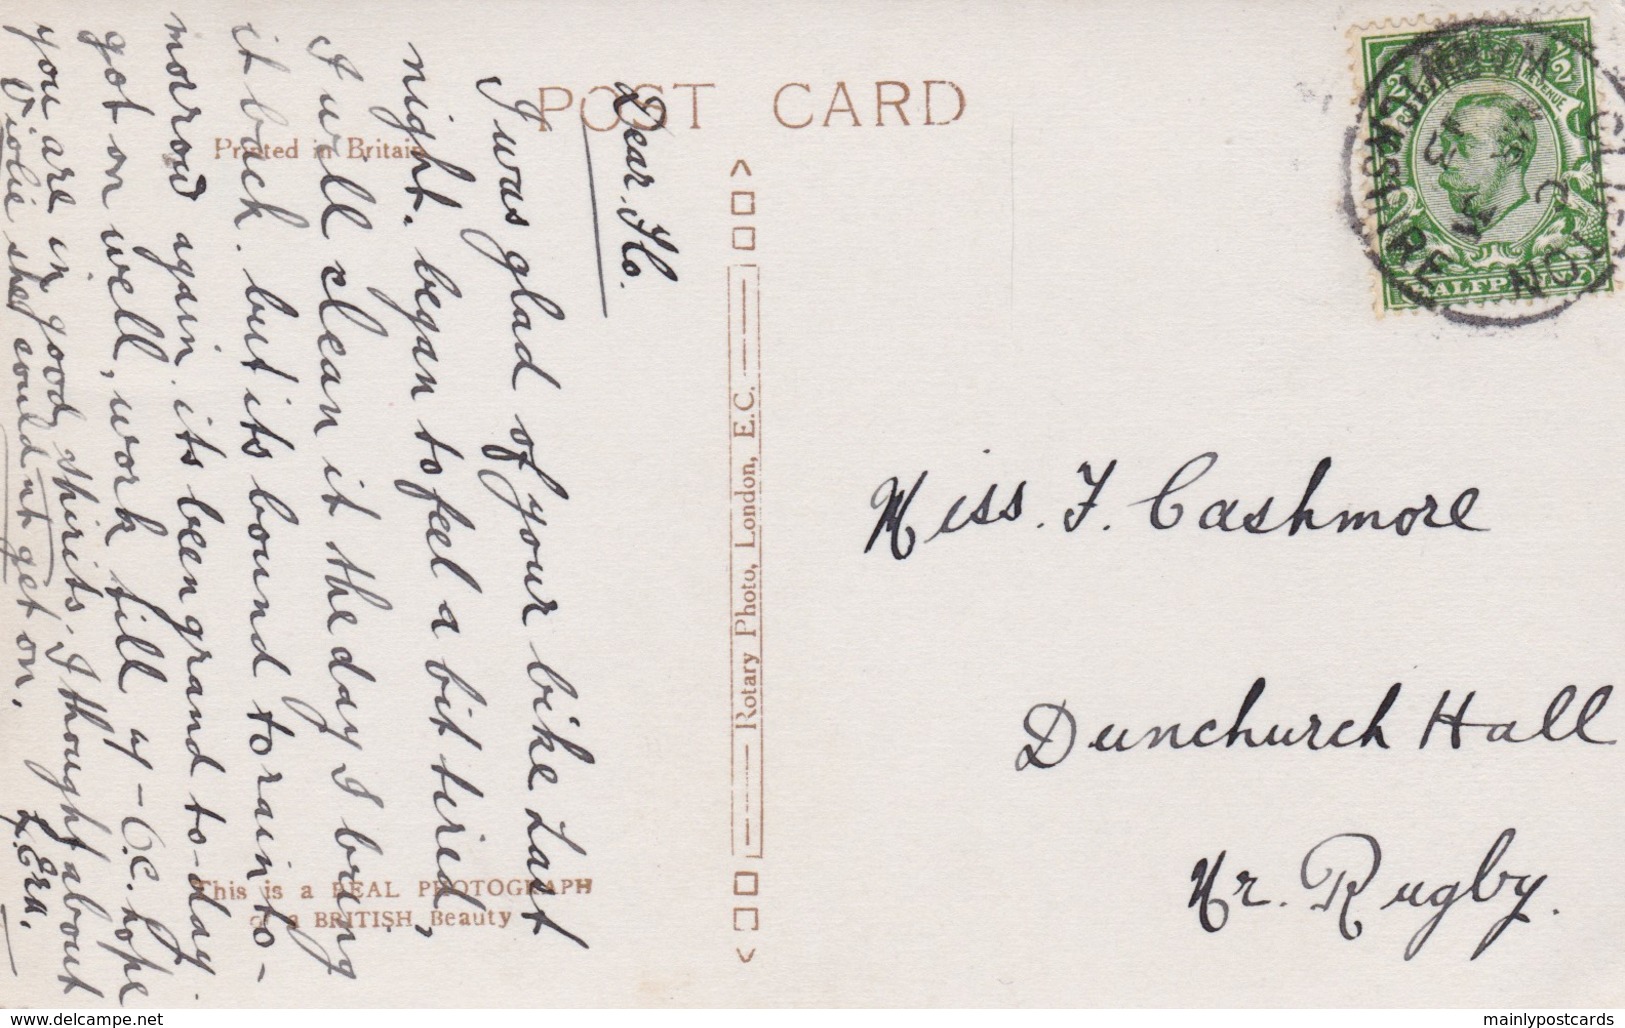 POST CARD
Printed in Britain
Dear Flo.
I was glad of your bike Last
night. began to feel a bit tired,
I will clean it the day I bring
it back. but its bound to rain to-
morrow again. its been grand to-day.
got on well, work till of - C.C. hope
you are in good spirits. I thought about
Violie she could nt get on.
L. Ern.
This is a REAL PHOTOGRAPH
of a BRITISH Beauty
Rotary Photo, London, E.C.
HALFPENNY
Miss. F. Cashmore
Dunchurch Hall
Nr. Rugby.
www.delcampe.net
mainlypostcards